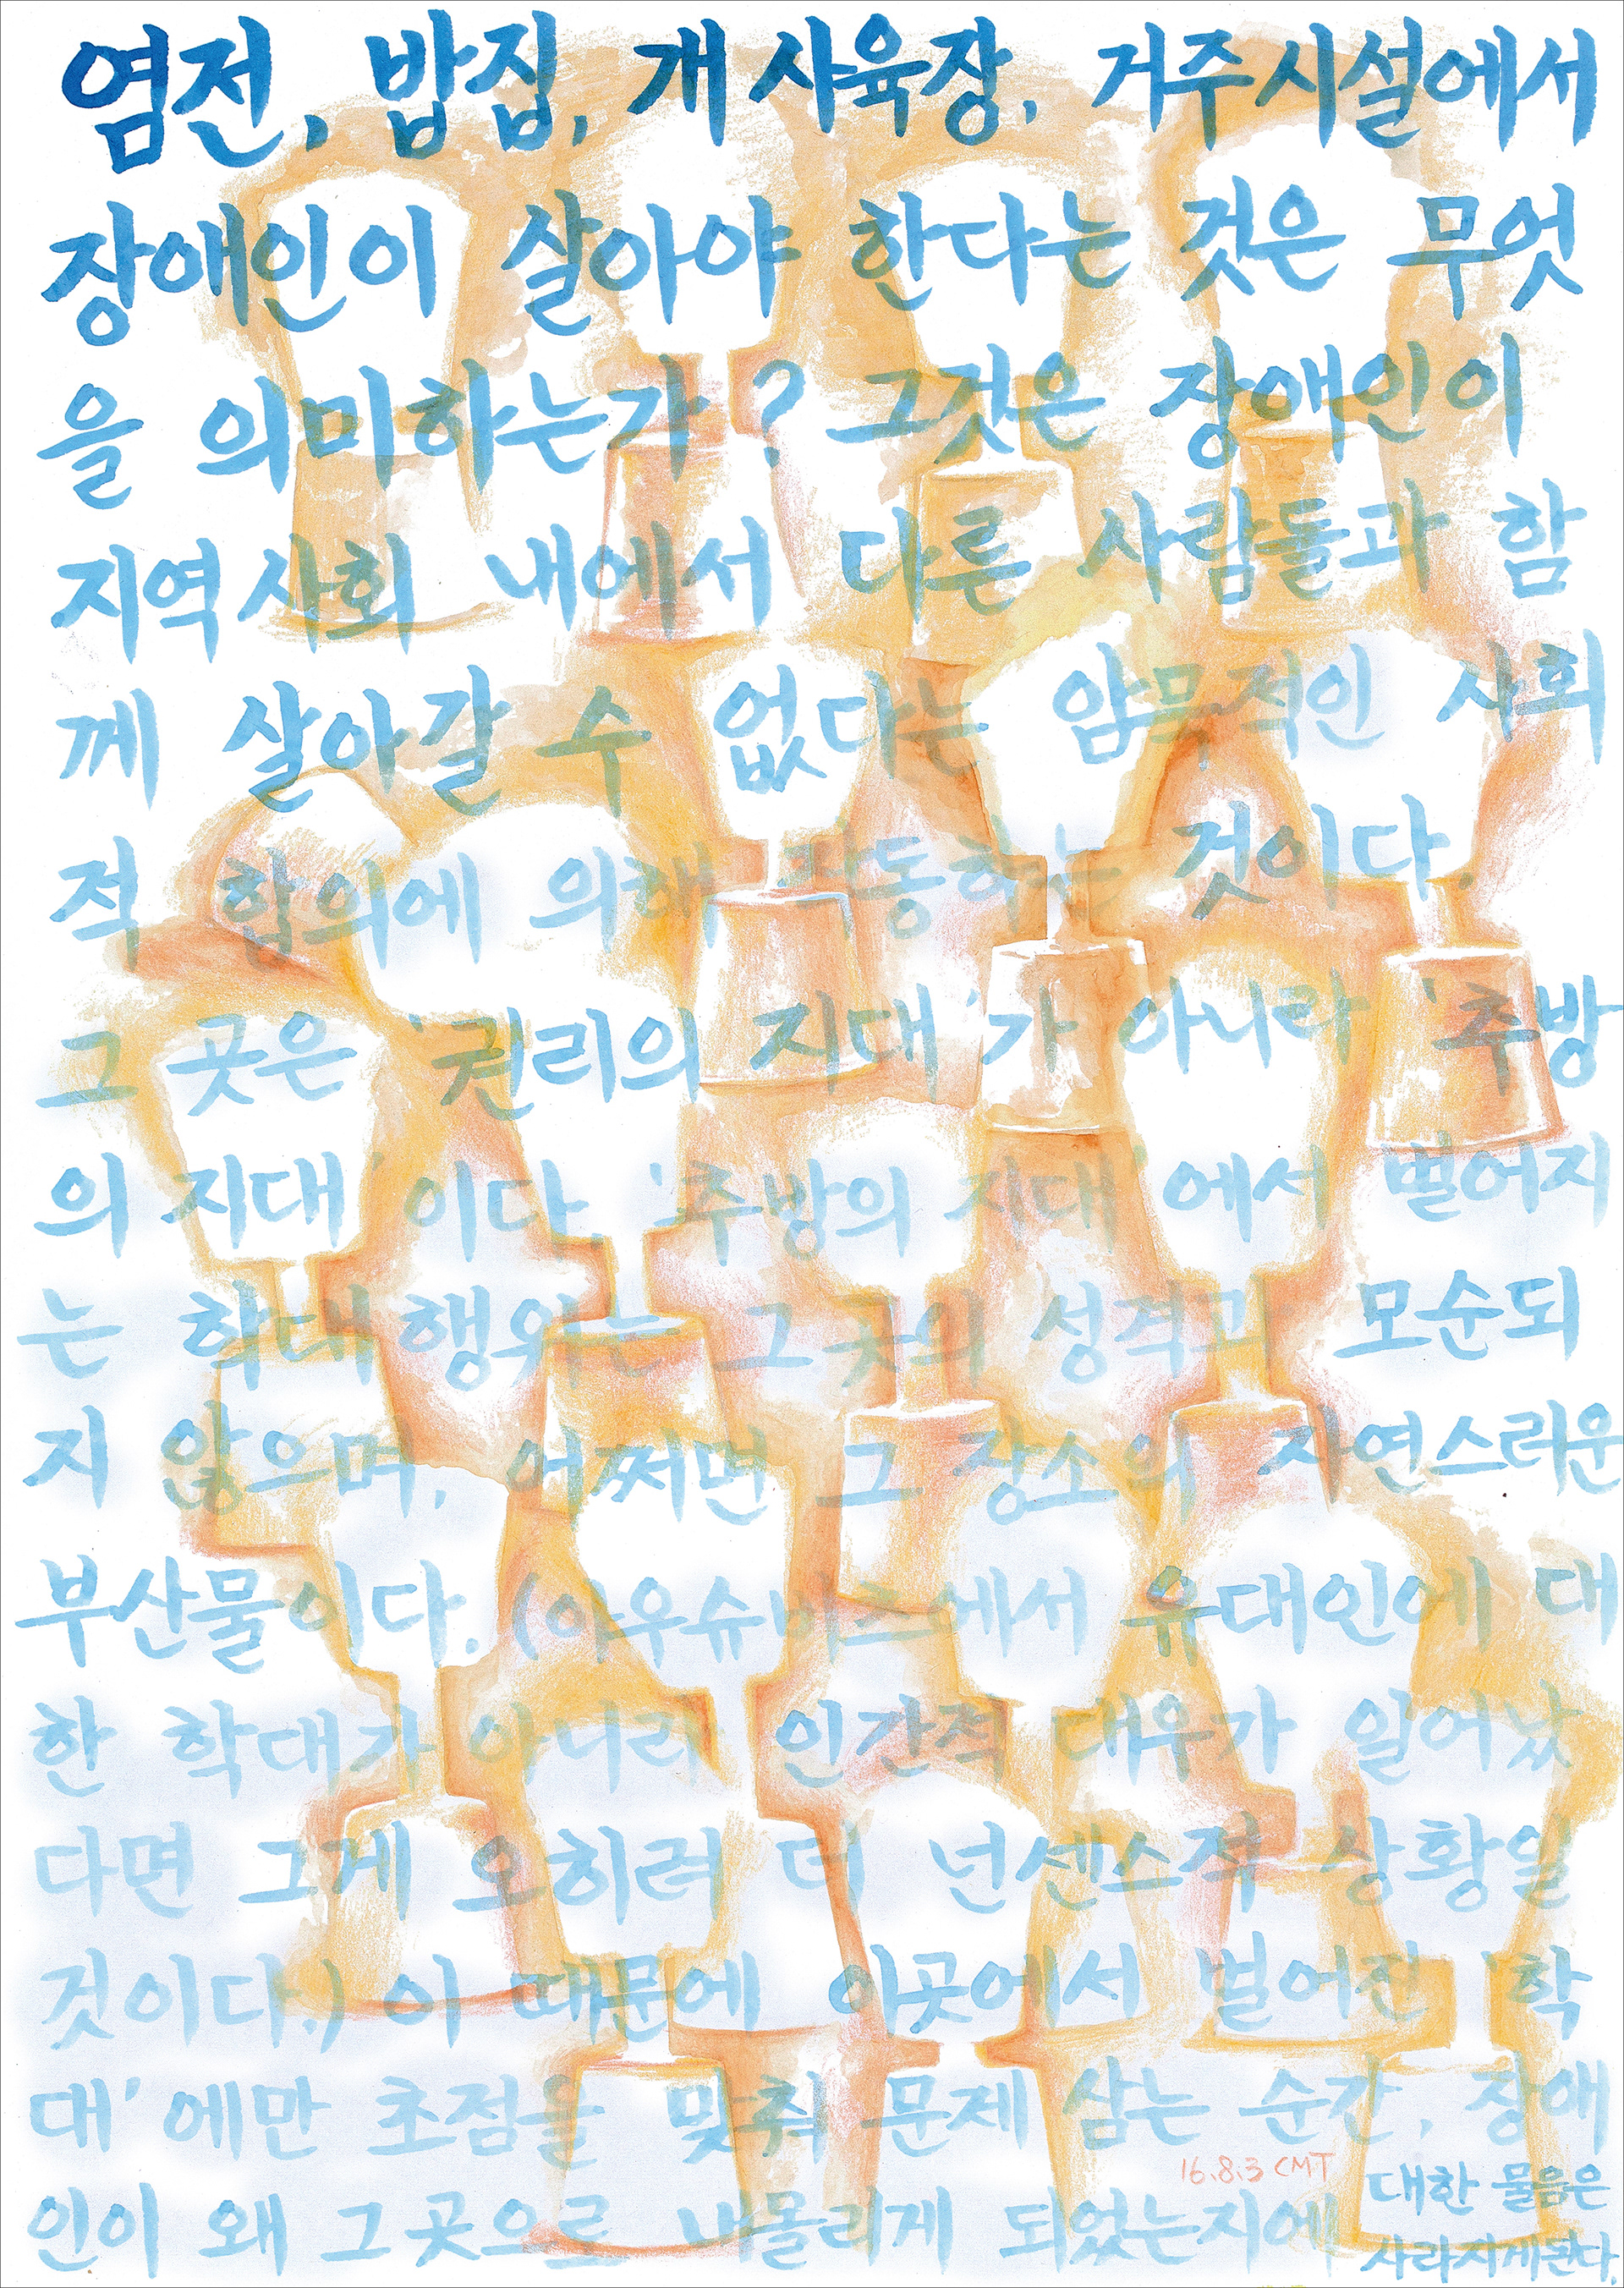 염전, 밥집, 개 사육장, 거주시설에서
장애인이 살아야 한다는 것은 무엇
을 의미하는가? 그것은 장애인이
지역사회 내에서 다른 사람들과 함
께 살아갈 수 없다는 암묵적인 사회
적 합의에 의해 작동하는 것이다.
그 곳은 '권리의 지대'가 아니라 '추방
의 지대'이다. '추방의 지대'에서 벌어지
는 학대 행위는 그 곳의 성격과 모순되
지 않으며, 어쩌면 그 장소의 자연스러운
부산물이다. (아우슈비츠에서 유대인에 대
한 학대가 아니라 인간적 대우가 일어났
다면 그게 오히려 더 넌센스적 상황일
것이다.) 이 때문에 이곳에서 벌어진 '학
대'에만 초점을 맞춰 문제 삼는 순간, 장애
인이 왜 그 곳으로 내몰리게 되었는지에
대한 물음은
사라지게된다.
16.8.3 CMT